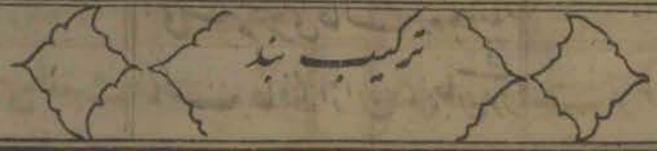 ترکیب بند